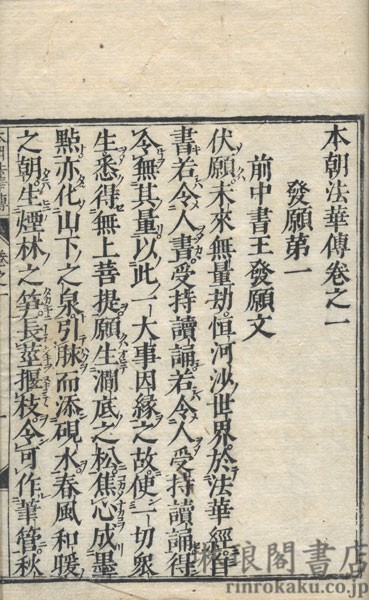 本朝法華傳卷之一
發願第一
前中書王發願文
伏願未來無量劫恒河沙世界於法華經自
書若令人書受持讀誦若令人受持讀誦得
令無其量以此一大事因緣之故使一切眾
生悉得無上菩提願生澗底之松焦心成墨
點亦化山下之泉引脉而添硯水春風和暖
之朝生煙林之笋長莖握枝令可作筆管秋
琳琅閣書店
rinrokaku.co.jp